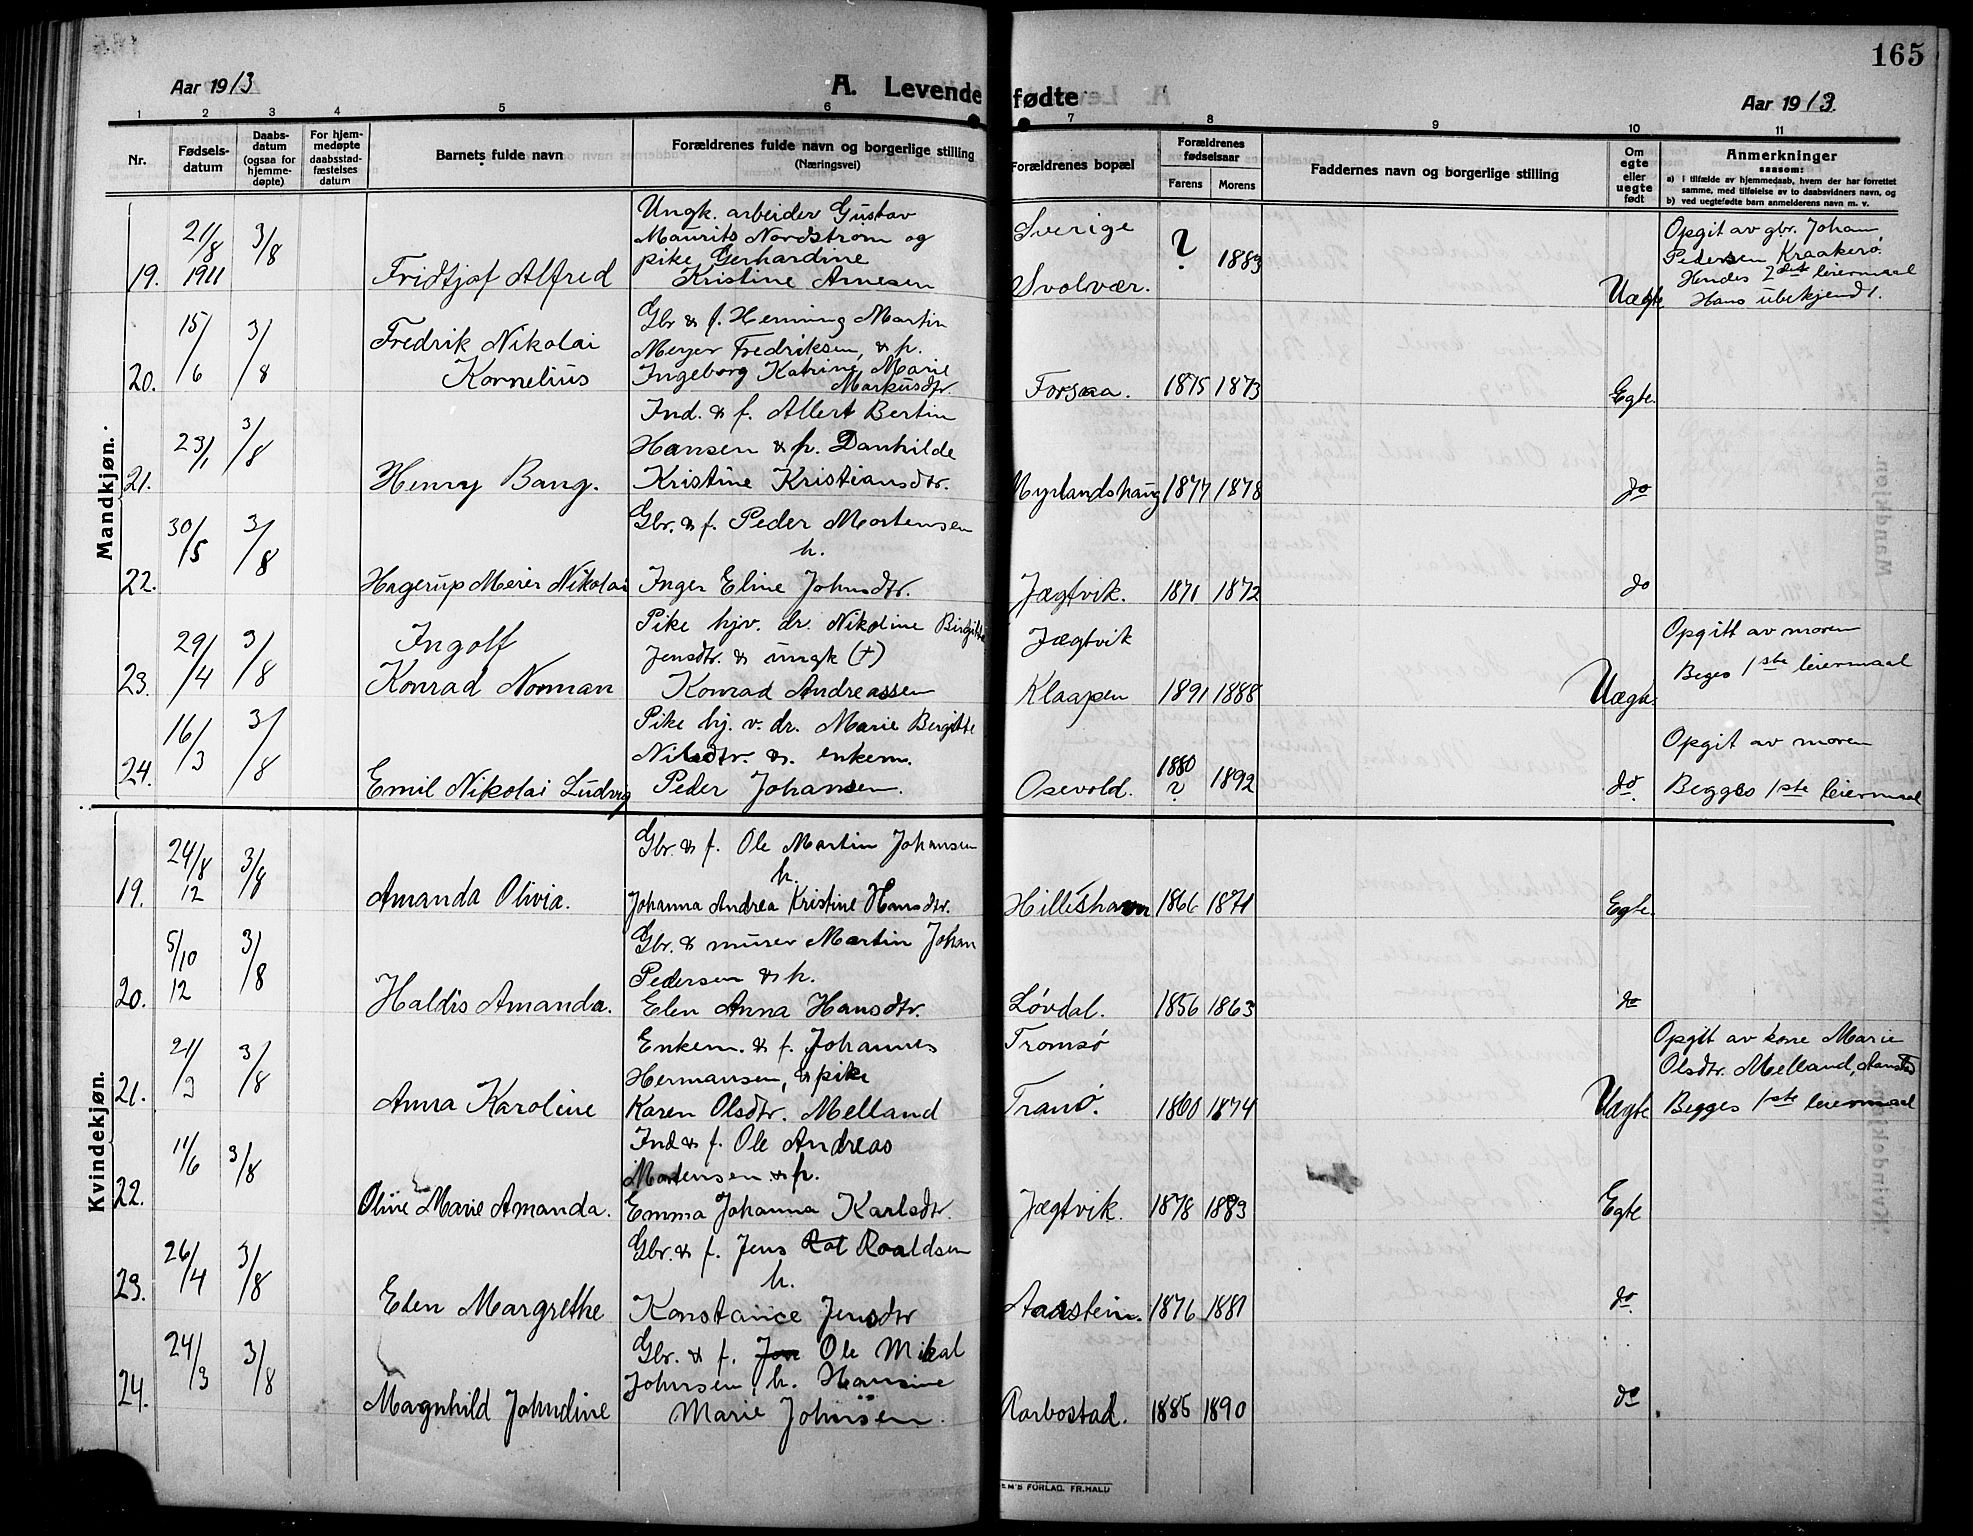 165
Aar 1913
A. Levendefødte
Aar 1913.
1 2 3 4 5 6 7 8 9 10 11
Nr.
Fødsels-
datum
Daabs-
datum
(ogsaa for
hjemme-
døpte)
For hjem-
medøpte
daabsstad-
fæstelses
datum
Barnets fulde navn
Forældrenes fulde navn og borgerlige stilling
(Næringsvei)
Forældrenes bopæl
Forældrenes
fødselsaar
Farens Morens
Faddernes navn og borgerlige stilling
Om
egte
eller
uegte
født
Anmerkninger
saasom:
a) i tilfælde av hjemmedaab, hvem der har forrettet
samme, med tilføielse av to daabsvidners navn, og
b) ved uegtefødte barn anmelderens navn m. v.
Mandkjøn.
19. 21/8 1911 3/8
Fridtjof Alfred
Ungk. arbeider Gustav
Maurits Nordstrøm og
pike Gerhardine
Kristine Arnesen
Sverige
Svolvær.
? 1883
Uægte
Opgit av gbr. Johan
Pedersen Kraakerø.
Hendes 2det leiermaal
Hans ubekjendt.
20. 15/6 3/8
Fredrik Nikolai
Kornelius
Gbr & f. Henning Martin
Meyer Fredriksen, & h.
Ingeborg Katrine Marie
Markusdtr.
Forsaa. 1875 1873 Egte.
21. 23/1 3/8
Henry Bang.
Ind. & f. Albert Bertin
Hansen & h. Danhilde
Kristine Kristiansdtr.
Myrlandshaug 1877 1878 do
22. 30/5 3/8
Hagerup Meier Nikolai
Gbr. & f. Peder Mortensen
h.
Inger Eline Johnsdtr.
Jægtvik. 1871 1872 do
23. 29/4 3/8
Ingolf
Konrad Norman
Pike hjv. dr. Nikoline Birgitte
Jensdtr. & ungk (+)
Konrad Andreassen
Jægtvik
Klaapen 1891 1888 Uægte.
Opgitt av moren
Beges 1ste leiermaal
24. 16/3 3/8
Emil Nikolai Ludvig
Pike hj. v. dr. Marie Bergitte
Nilsdtr. & enkem.
Peder Johansen.
Osevold. 1880 ? 1892 do.
Opgit av moren
Begges 1ste leiermaal
Kvindekjøn.
19. 24/8 12 3/8
Amanda Olivia.
Gbr. & f. Ole Martin Johansen
h.
Johanna Andrea Kristine Hansdtr.
Hilleshavn 1866 1871 Egte.
20. 5/10 12 3/8
Haldis Amanda.
Gbr. & murer Martin Johan
Pedersen & h.
Elen Anna Hansdtr.
Løvdal. 1856 1863 do
21. 21/3 3/8
Anna Karoline
Enkem. & f. Johannes
Hermansen, & pike
Karen Olsdtr. Melland
Tromsø
Tranø. 1860 1874 Uægte
Opgitt av kone Marie
Olsdtr. Melland,
Begges 1ste leiermaal
22. 11/6 3/8
Oline Marie Amanda.
Ind & f. Ole Andreas
Mortensen & h.
Emma Johanna Karlsdtr.
Jægtvik. 1878 1883 Egte
23. 26/4 3/8
Elen Margrethe
Gbr. & f. Jens Rol Roaldsen
h.
Konstance Jensdtr
Aarstein. 1876 1881 do.
24. 24/3 3/8
Magnhild Johndine
Gbr. & f. Ole Mikal
Johnsen, h. Hansine
Marie Johnsen.
Rarbostad. 1885 1890 do
FORLAG. FR.HALD